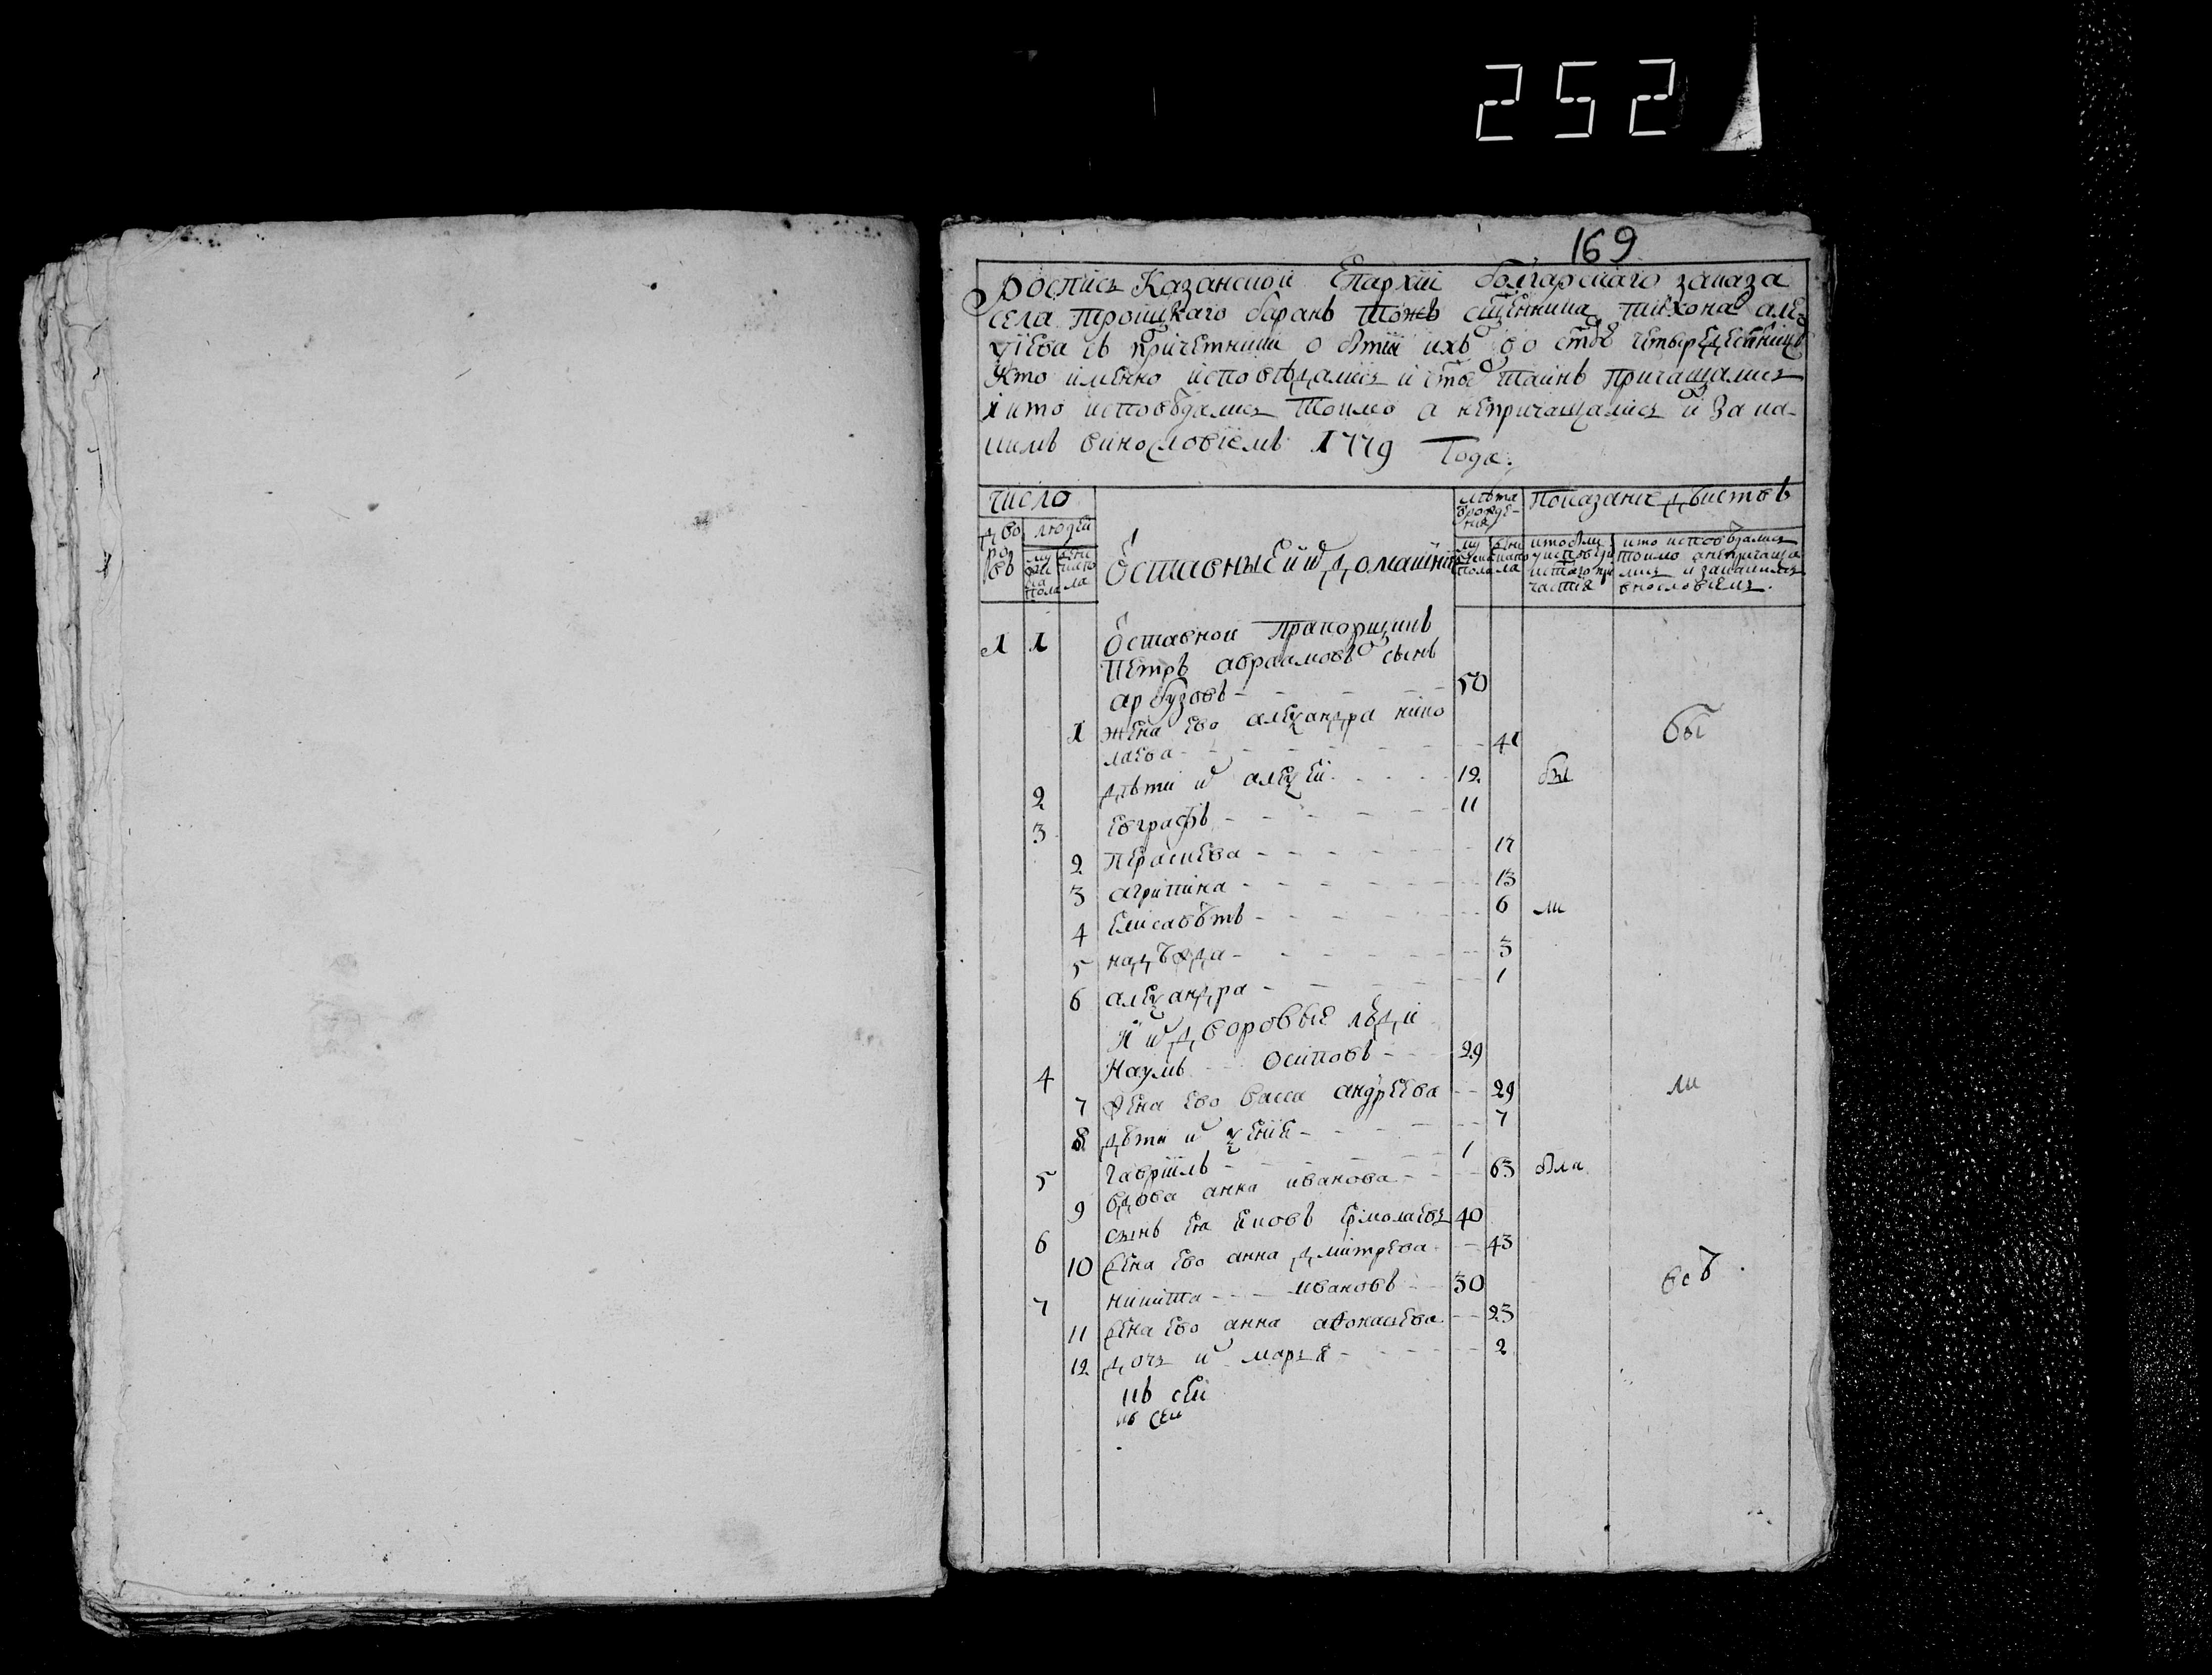 252
169
Роспись Казанской Епархїи болгарскаго заказа
села Троицкаго баранъ Тожъ сщенника тихона але
ѯїева съ причетники о бытїи ихъ во стые четыредесятницы
Кто имѣнно исповѣдались и стых таинъ Причащались
і кто исповѣдались Токмо а непричащались и За ка-
кимъ винословїемъ 1779 Года:
число
дво
ро
въ
людей
му
жеска
пола
жен
скаго
ла
Ѿставные и ихъ домашнїе
лѣта
ѿ рожде-
нія
му
жеска
пола
жен
скаго
ла
Показание действъ
кто были
у исповеди
и стаго при
частїя
кто исповѣдались
токмо а непричаща
лись и закакимъ
винословїемъ.
1 1 Ѿставной Прапорщикъ
Петръ авраамовъ сынъ
арбузовъ - - - - - 50
1 жена ево алеѯандра нико
лаева - - - - - 41 бы
2 дѣти их алеѯей - - - 12 бы
3 евграфъ - - - - - 11
2 Параскева - - - - - 17
3 агрипина - - - - - 13
4 Елисавѣтъ - - - - - 6 ли
5 надѣжда - - - - - 3
6 алеѯандра - - - - - 1
Их дворовые люди
4 Наумъ - - Осиповъ - - 29
7 жена ево васса андреева - - 29 ли
8 дѣти их ѯенїя - - - - - 7
5 Гаврїилъ - - - - - 1
9 вдова анна иванова - - 63 были
6 сынъ ея Яковъ Ермолаевъ 40
10 жена ево анна дмитрева - - 43
7 никита - - - ивановъ - - 30 всѣ.
11 жена ево анна афонасьева - - 23
12 дочь их марья - - - - - 2
къ сей
къ сей